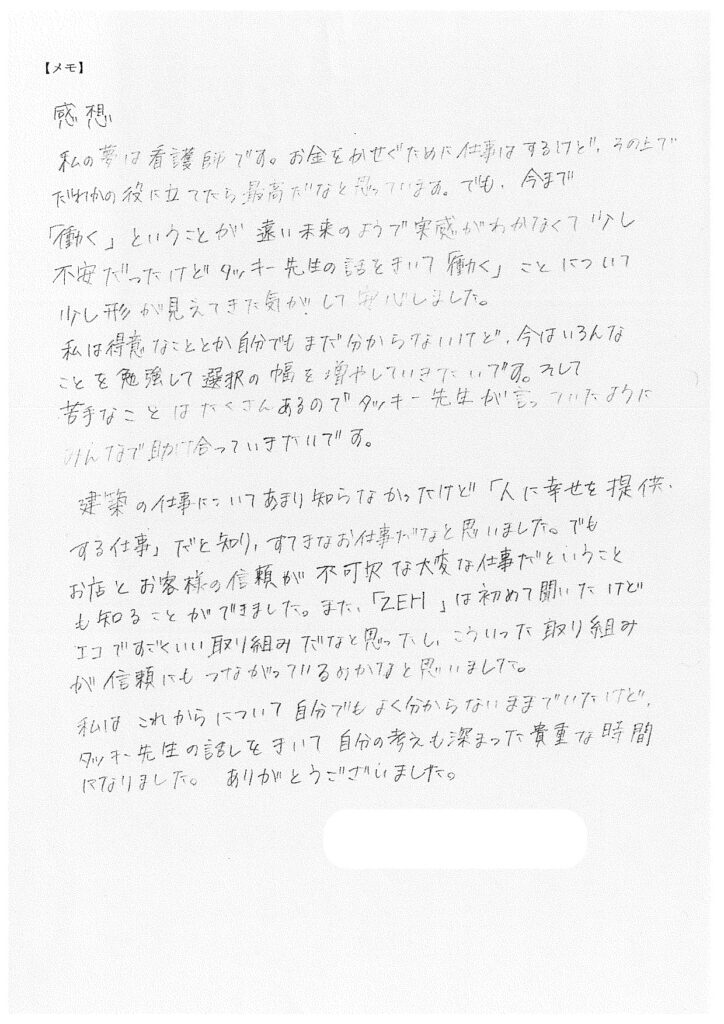 【メモ】
感想
私の夢は看護師です。お金をかせぐために仕事はするけど、その上で
だれかの役に立てたら最高だなと思っています。でも、今まで
「働く」ということが遠い未来のようで実感がわかなくて少し
不安だったけどタッキー先生の話をきいて「働く」ことについて
少し形が見えてきた気がして安心しました。
私は得意なこととか自分でもまだ分からないけど、今はいろんな
ことを勉強して選択の幅を増やしていきたいです。そして
苦手なことはたくさんあるのでタッキー先生が言っていたように
みんなで助け合っていきたいです。
建築の仕事についてあまり知らなかったけど「人に幸せを提供
する仕事」だと知り、すてきなお仕事だなと思いました。でも
お店とお客様の信頼が不可欠な大変な仕事だということ
も知ることができました。また、「ZEH」は初めて聞いたけど
エコですごくいい取り組みだなと思ったし、こういった取り組み
が信頼にもつながっているのかなと思いました。
私はこれからについて自分でもよく分からないままでいたけど、
タッキー先生の話しをきいて自分の考えも深まった貴重な時間
になりました。ありがとうございました。